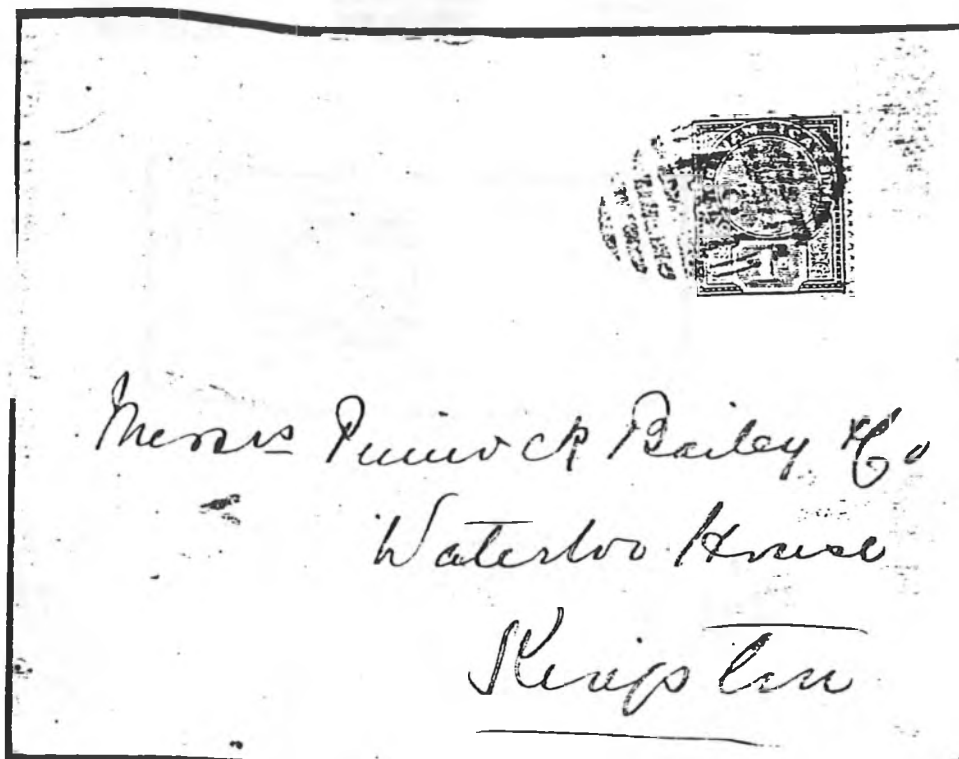 JAMAICA
1
Messrs Pinnock Bailey & Co
Waterloo House
Kingston